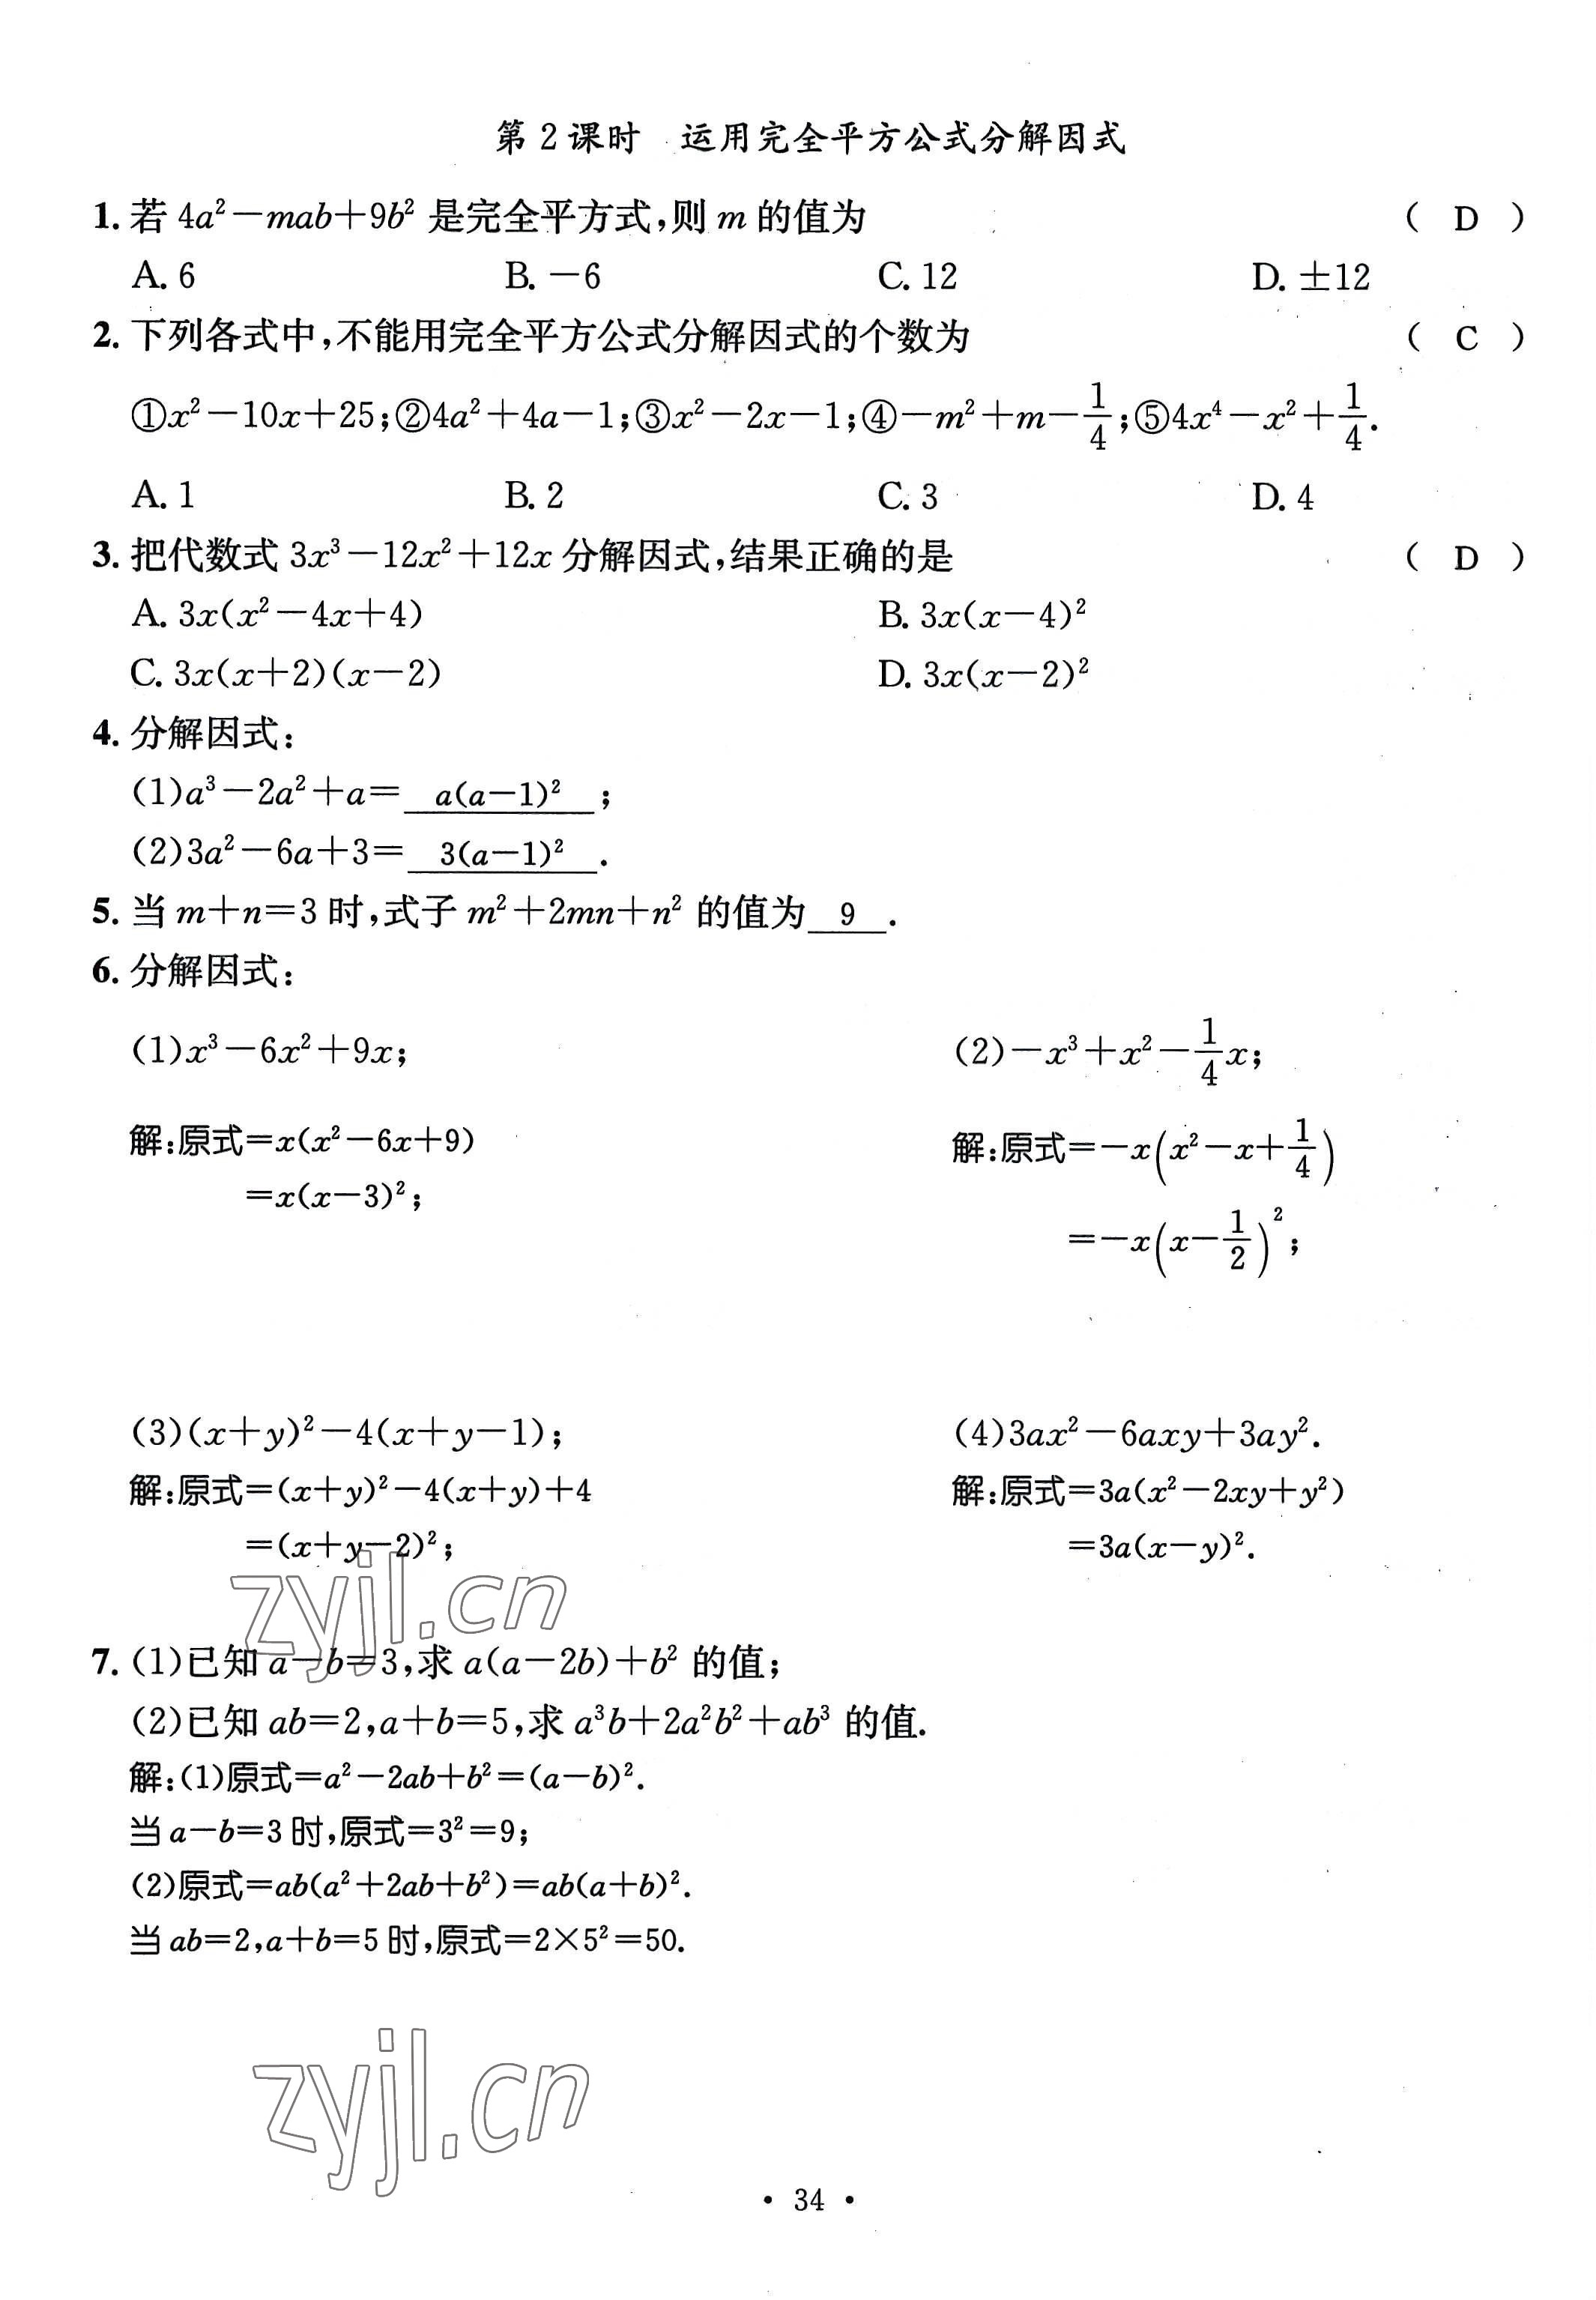 第2课时 运用完全平方公式分解因式
1. 若 4a²－mab＋9b² 是完全平方式,则 m 的值为 ( D )
A. 6 B. －6 C. 12 D. ±12
2. 下列各式中,不能用完全平方公式分解因式的个数为 ( C )
①x²－10x＋25;②4a²＋4a－1;③x²－2x－1;④－m²＋m－1/4;⑤4x⁴－x²＋1/4.
A. 1 B. 2 C. 3 D. 4
3. 把代数式 3x³－12x²＋12x 分解因式,结果正确的是 ( D )
A. 3x(x²－4x＋4) B. 3x(x－4)²
C. 3x(x＋2)(x－2) D. 3x(x－2)²
4. 分解因式:
(1)a³－2a²＋a＝ a(a－1)² ;
(2)3a²－6a＋3＝ 3(a－1)² .
5. 当 m＋n＝3 时,式子 m²＋2mn＋n² 的值为 9 .
6. 分解因式:
(1)x³－6x²＋9x; (2)－x³＋x²－1/4x;
解:原式＝x(x²－6x＋9) 解:原式＝－x(x²－x＋1/4)
＝x(x－3)²; ＝－x(x－1/2)²;
(3)(x＋y)²－4(x＋y－1); (4)3ax²－6axy＋3ay².
解:原式＝(x＋y)²－4(x＋y)＋4 解:原式＝3a(x²－2xy＋y²)
＝(x＋y－2)²; ＝3a(x－y)².
zyjl.cn
7. (1)已知 a－b＝3,求 a(a－2b)＋b² 的值;
(2)已知 ab＝2,a＋b＝5,求 a³b＋2a²b²＋ab³ 的值.
解:(1)原式＝a²－2ab＋b²＝(a－b)².
当 a－b＝3 时,原式＝3²＝9;
(2)原式＝ab(a²＋2ab＋b²)＝ab(a＋b)².
当 ab＝2,a＋b＝5 时,原式＝2×5²＝50.
zyjl.cn
· 34 ·